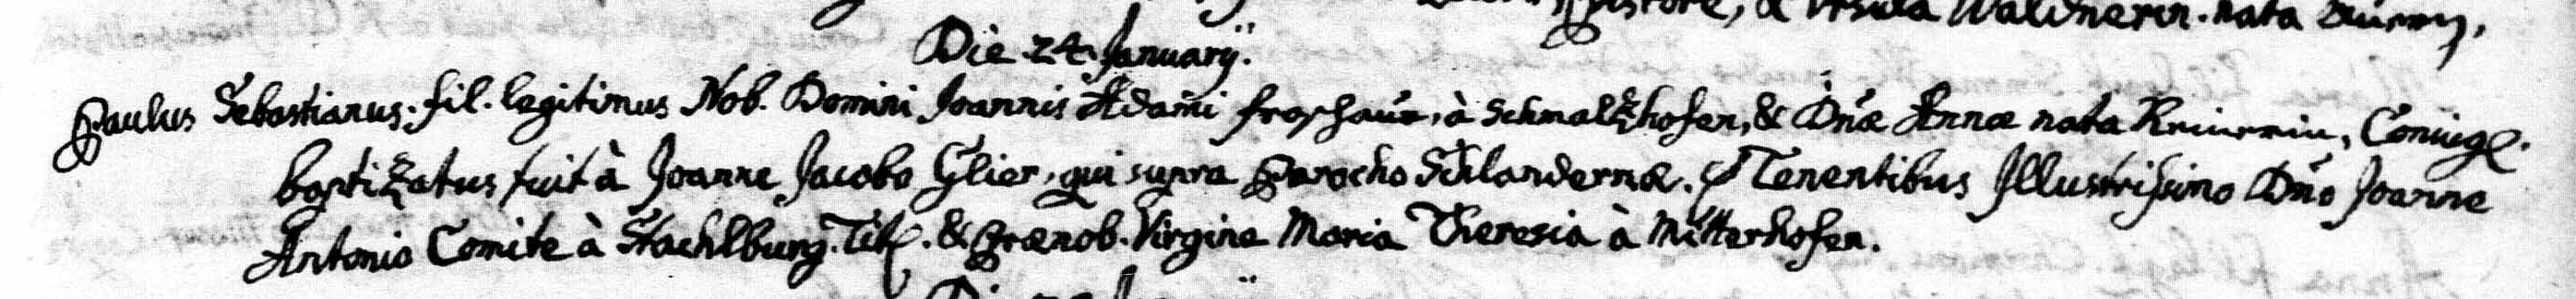 Pistore, & Ursula Waldnerin. nata
Die 24. Januarÿ.
Paulus Sebastianus. fil. legitimus Nob. Domini Joannis Adami froshaür, à Schmaltzhofen, & Dn̄æ Annæ nata Conjügl.
baptizatus fuit à Joanne Jacobo Glier, qui supra Parocho Schlandernæ. Tenentibus Illustrissimo Dn̄o Joanne
Antonio Comite à Stachlburg. Titl. & Prænob. Virgine Maria Theresia à Mitterhofen.